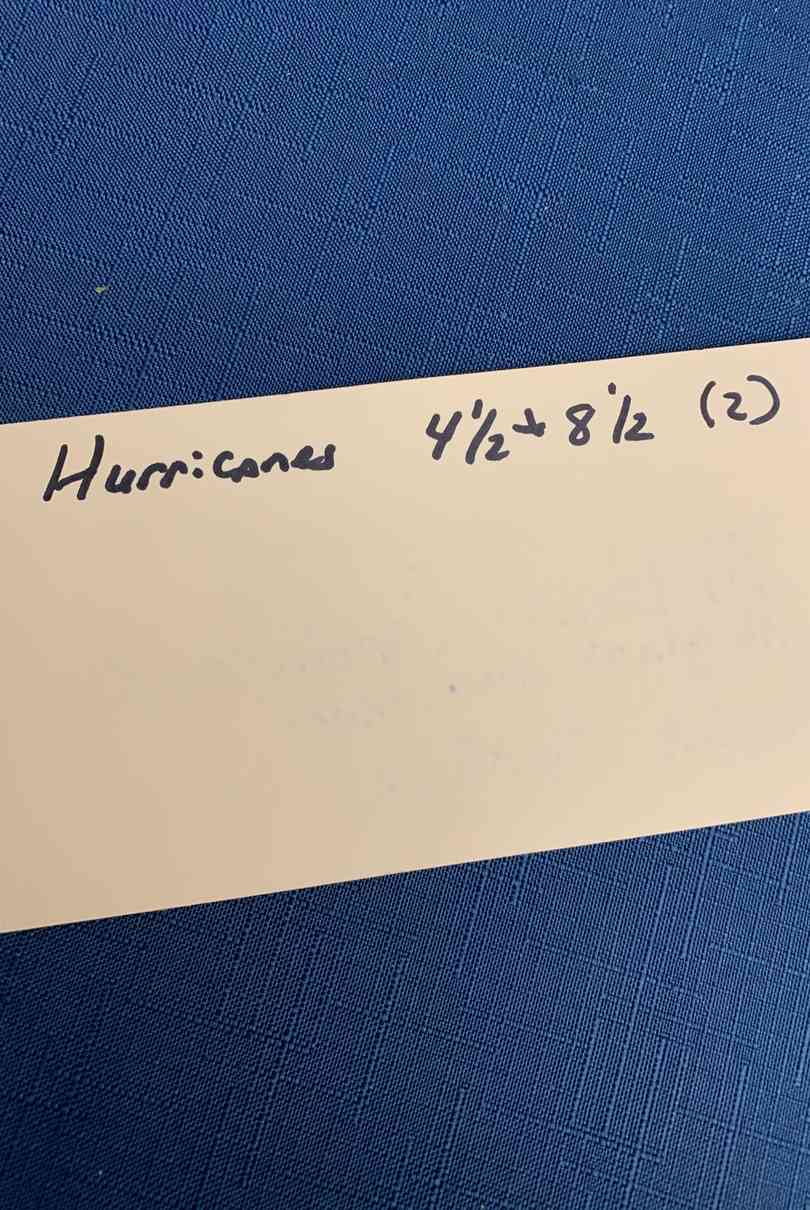 Hurricanes 4 1/2 + 8 1/2 (2)